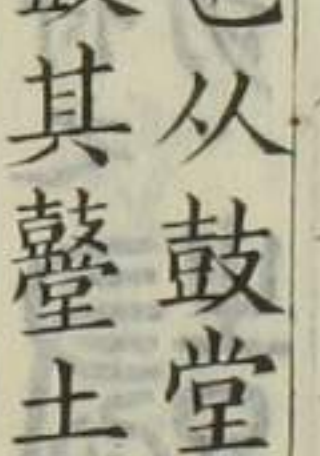 也从鼓堂
其鼞土